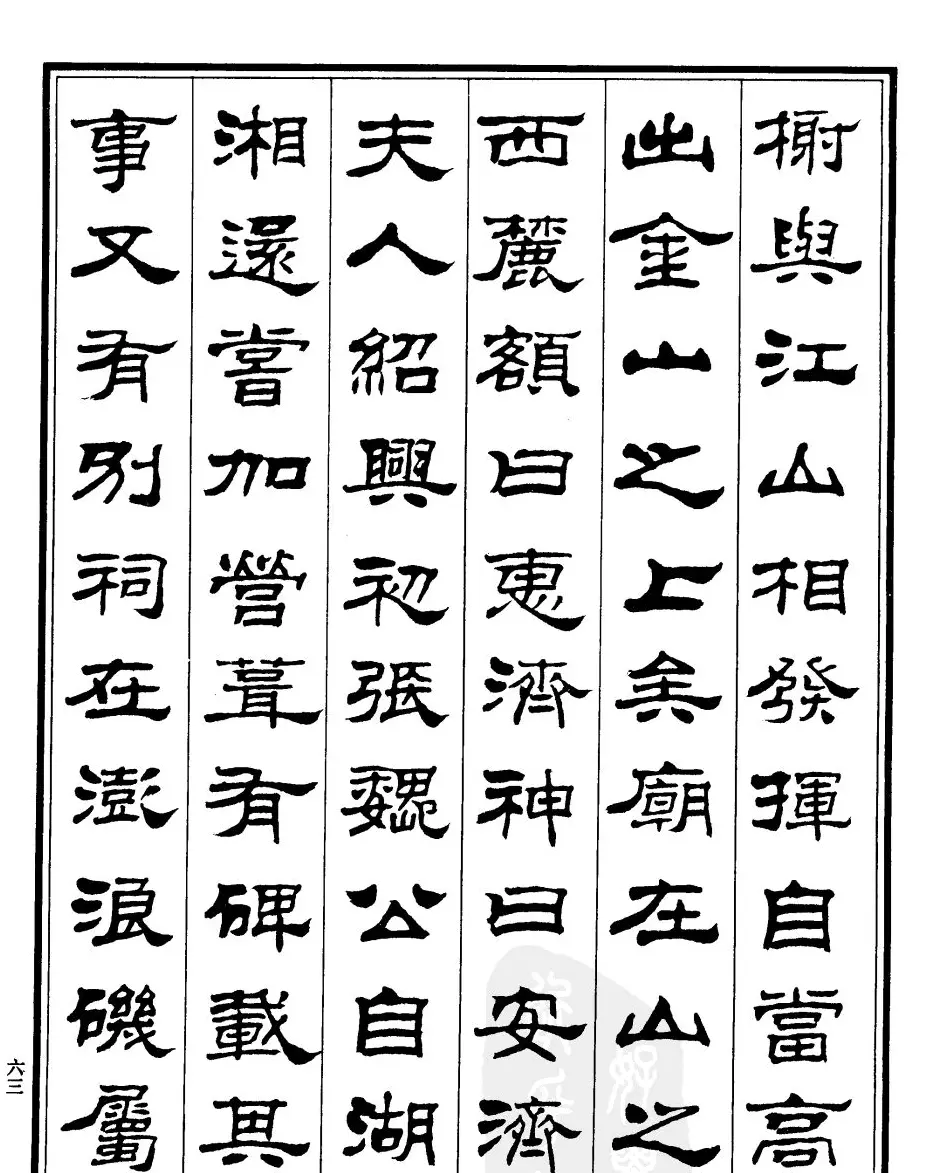 榭與江山相發揮自當高
出金山之上矣廟在山之
西麓額曰惠濟神曰安濟
夫人紹興初張魏公自湖
湘還嘗加營葺有碑載其
事又有別祠在澎浪磯屬
六三